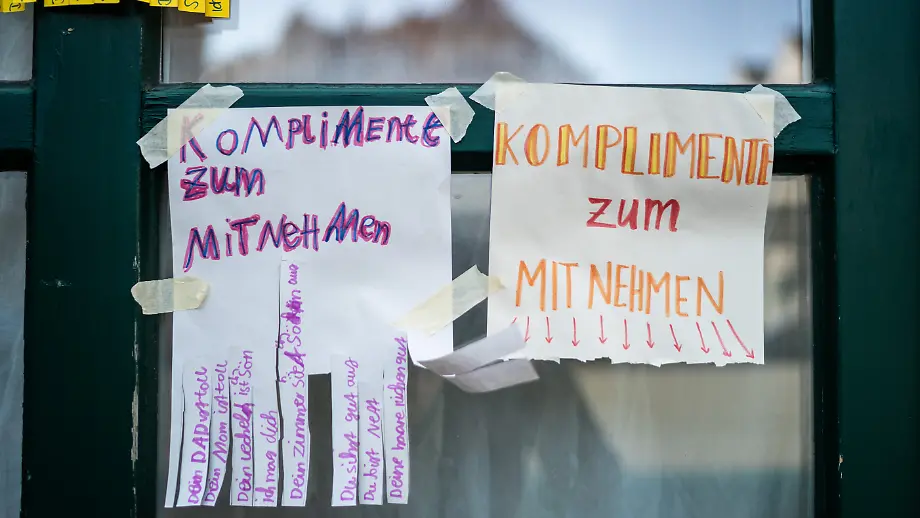 KOMPLIMENTE
zum
MITNEHMEN
Dein DAD ist toll
Dein Mom ist toll
Dein lecheln ist Sön
ich mag dich
Dein zimmer siet Sön aus
Du sihst gut aus
Du bist nett
Deine haare richen gut
KOMPLIMENTE
zum
MITNEHMEN